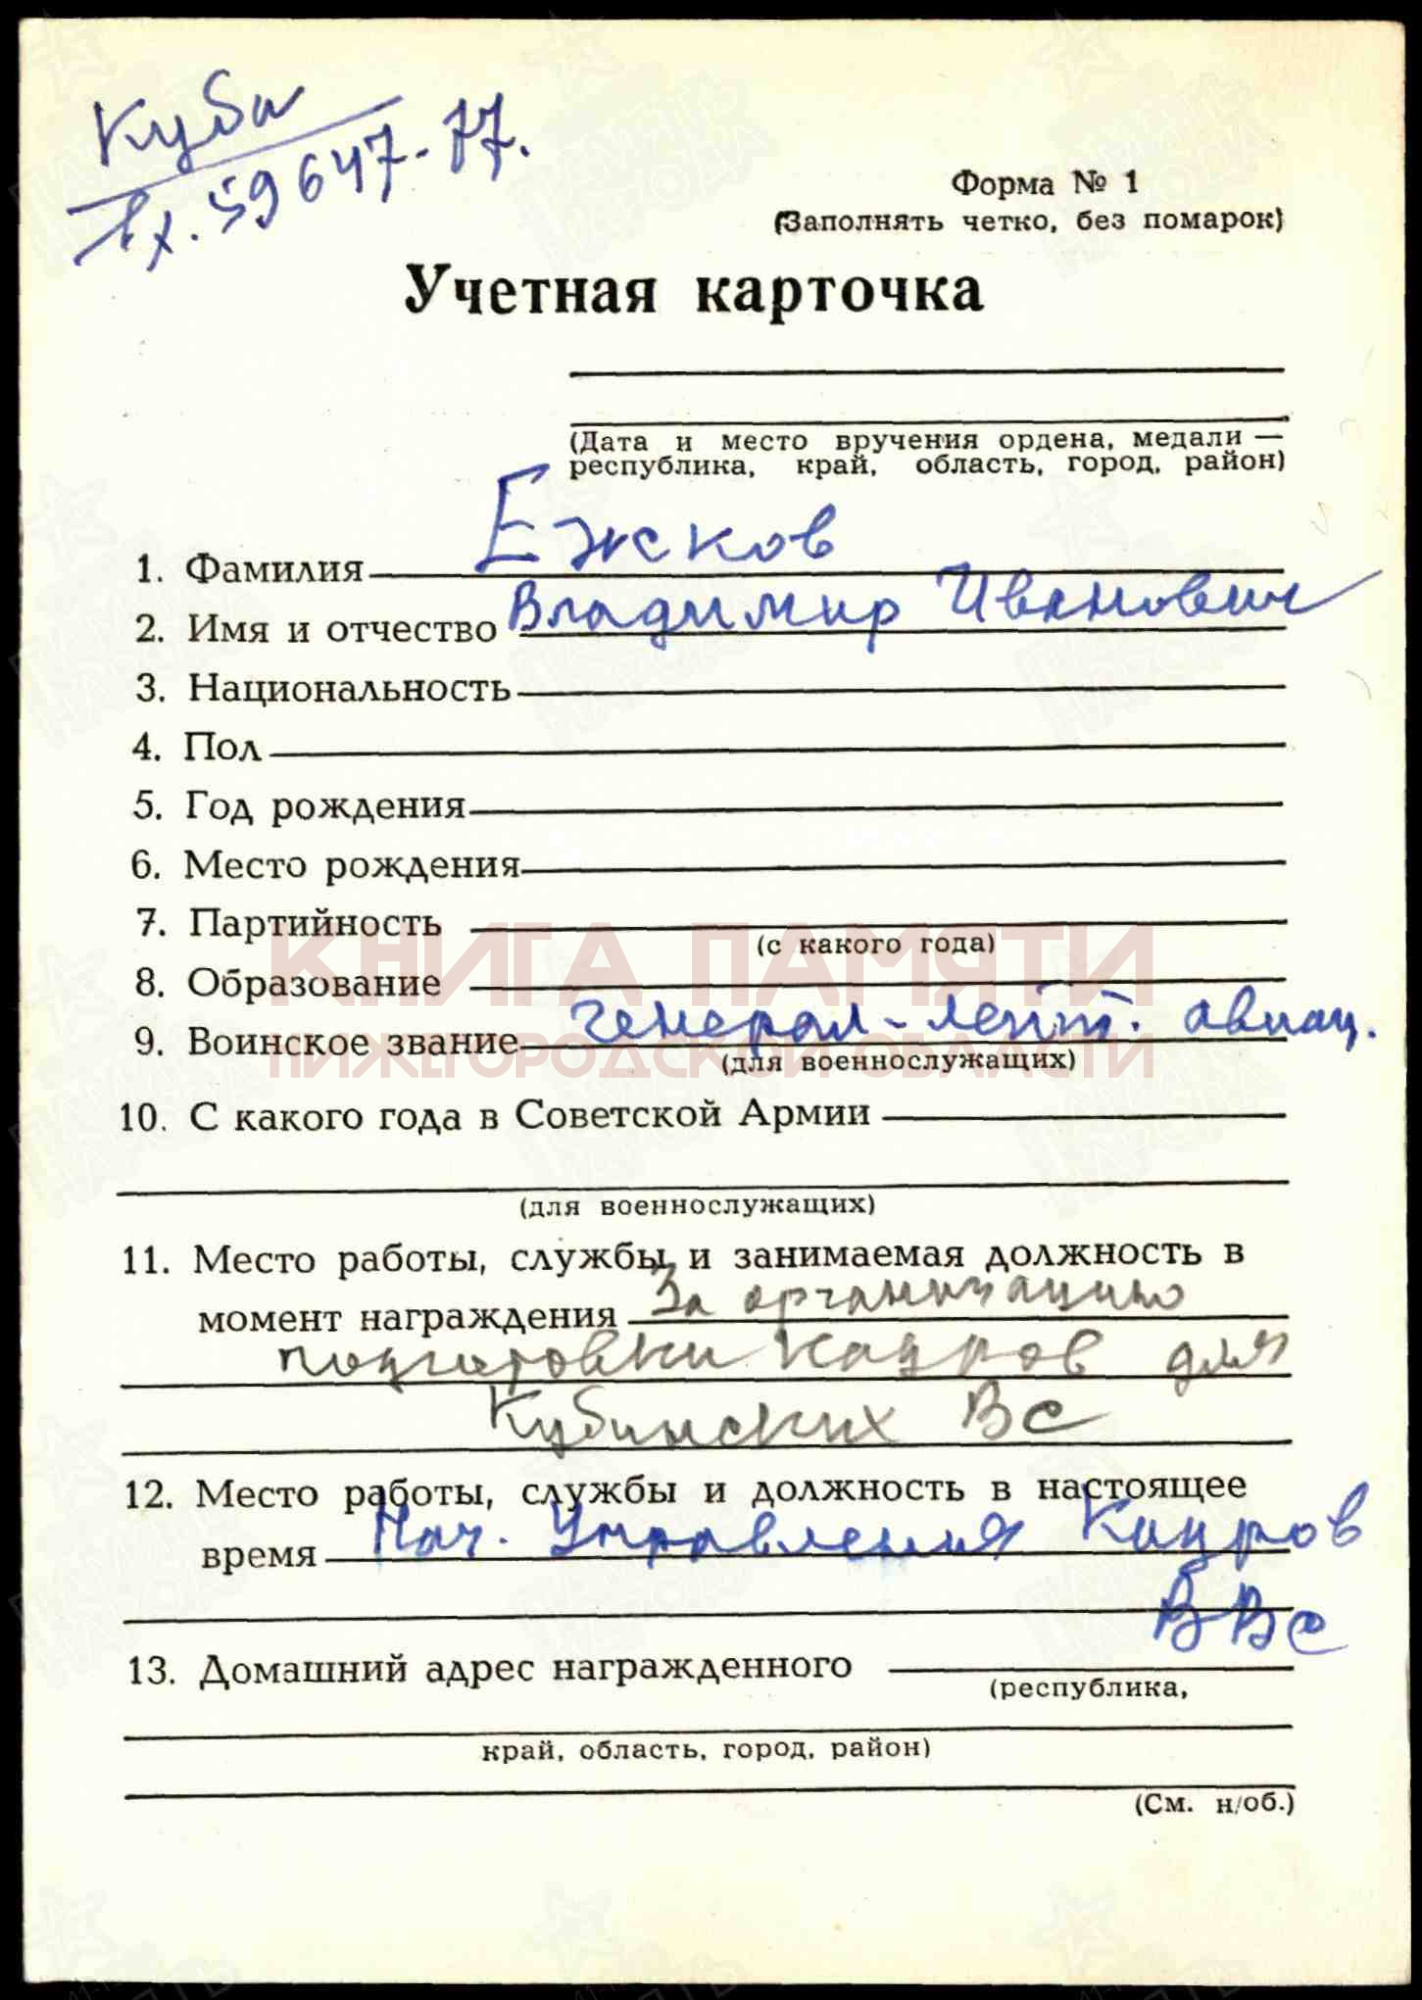 Куба
Вх. 59647-77.
Форма № 1
(Заполнять четко, без помарок)
Учетная карточка
(Дата и место вручения ордена, медали —
республика, край, область, город, район)
1. Фамилия Ежков
2. Имя и отчество Владимир Иванович
3. Национальность
4. Пол
5. Год рождения
6. Место рождения
7. Партийность
(с какого года)
КНИГА ПАМЯТИ
8. Образование
9. Воинское звание генерал-лейт. авиац.
(для военнослужащих)
НИЖЕГОРОДСКОЙ ОБЛАСТИ
10. С какого года в Советской Армии
(для военнослужащих)
11. Место работы, службы и занимаемая должность в
момент награждения За организацию
подготовки кадров для
Кубинских ВС
12. Место работы, службы и должность в настоящее
время Нач. Управления Кадров
ВВС
13. Домашний адрес награжденного
(республика,
край, область, город, район)
(См. н/об.)